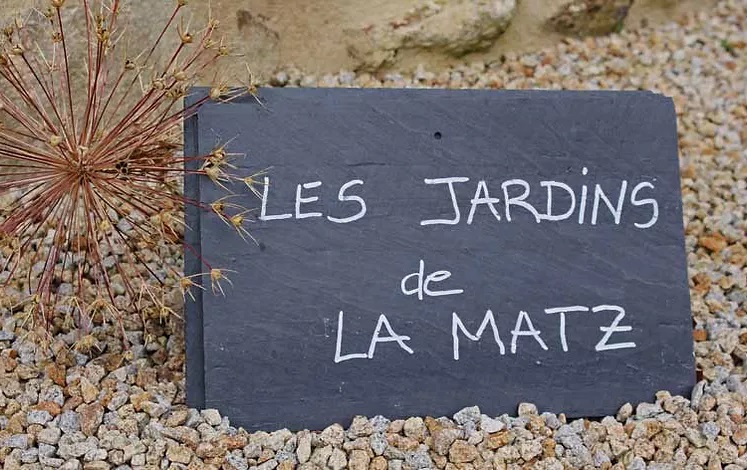 LES JARDiNS
de
LA MATZ